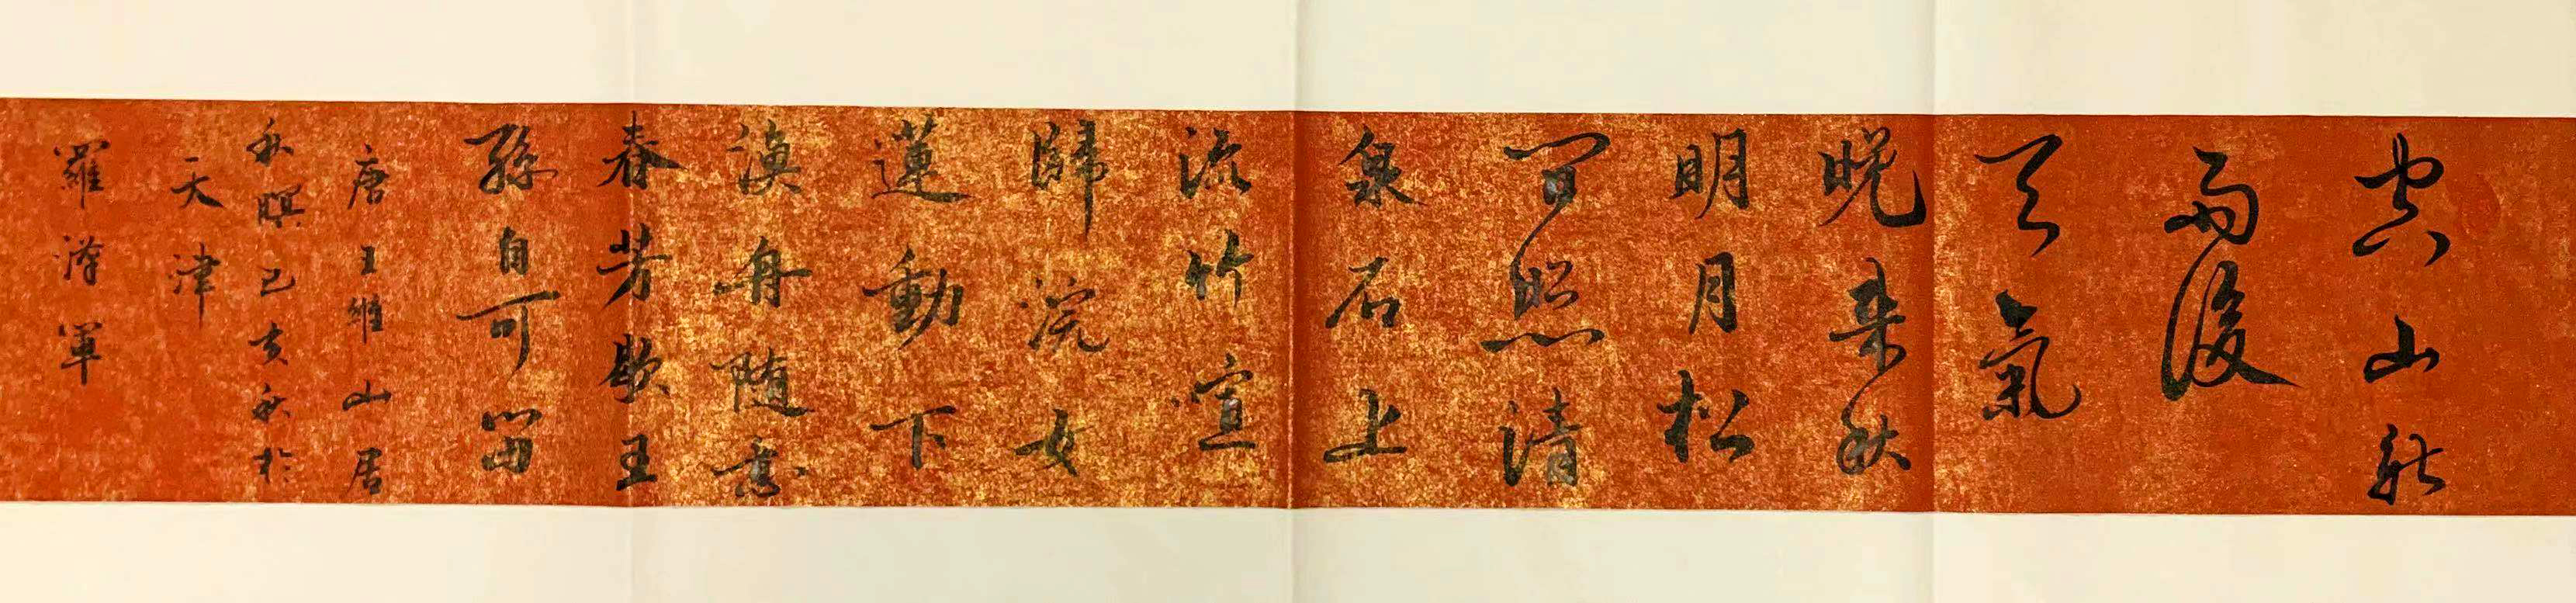 空山新
雨後
天氣
晚来秋
明月松
間照清
泉石上
流竹喧
歸浣女
蓮動下
漁舟随意
春芳歇王
孫自可留
唐王維山居
秋暝己亥秋於
天津
羅澤軍